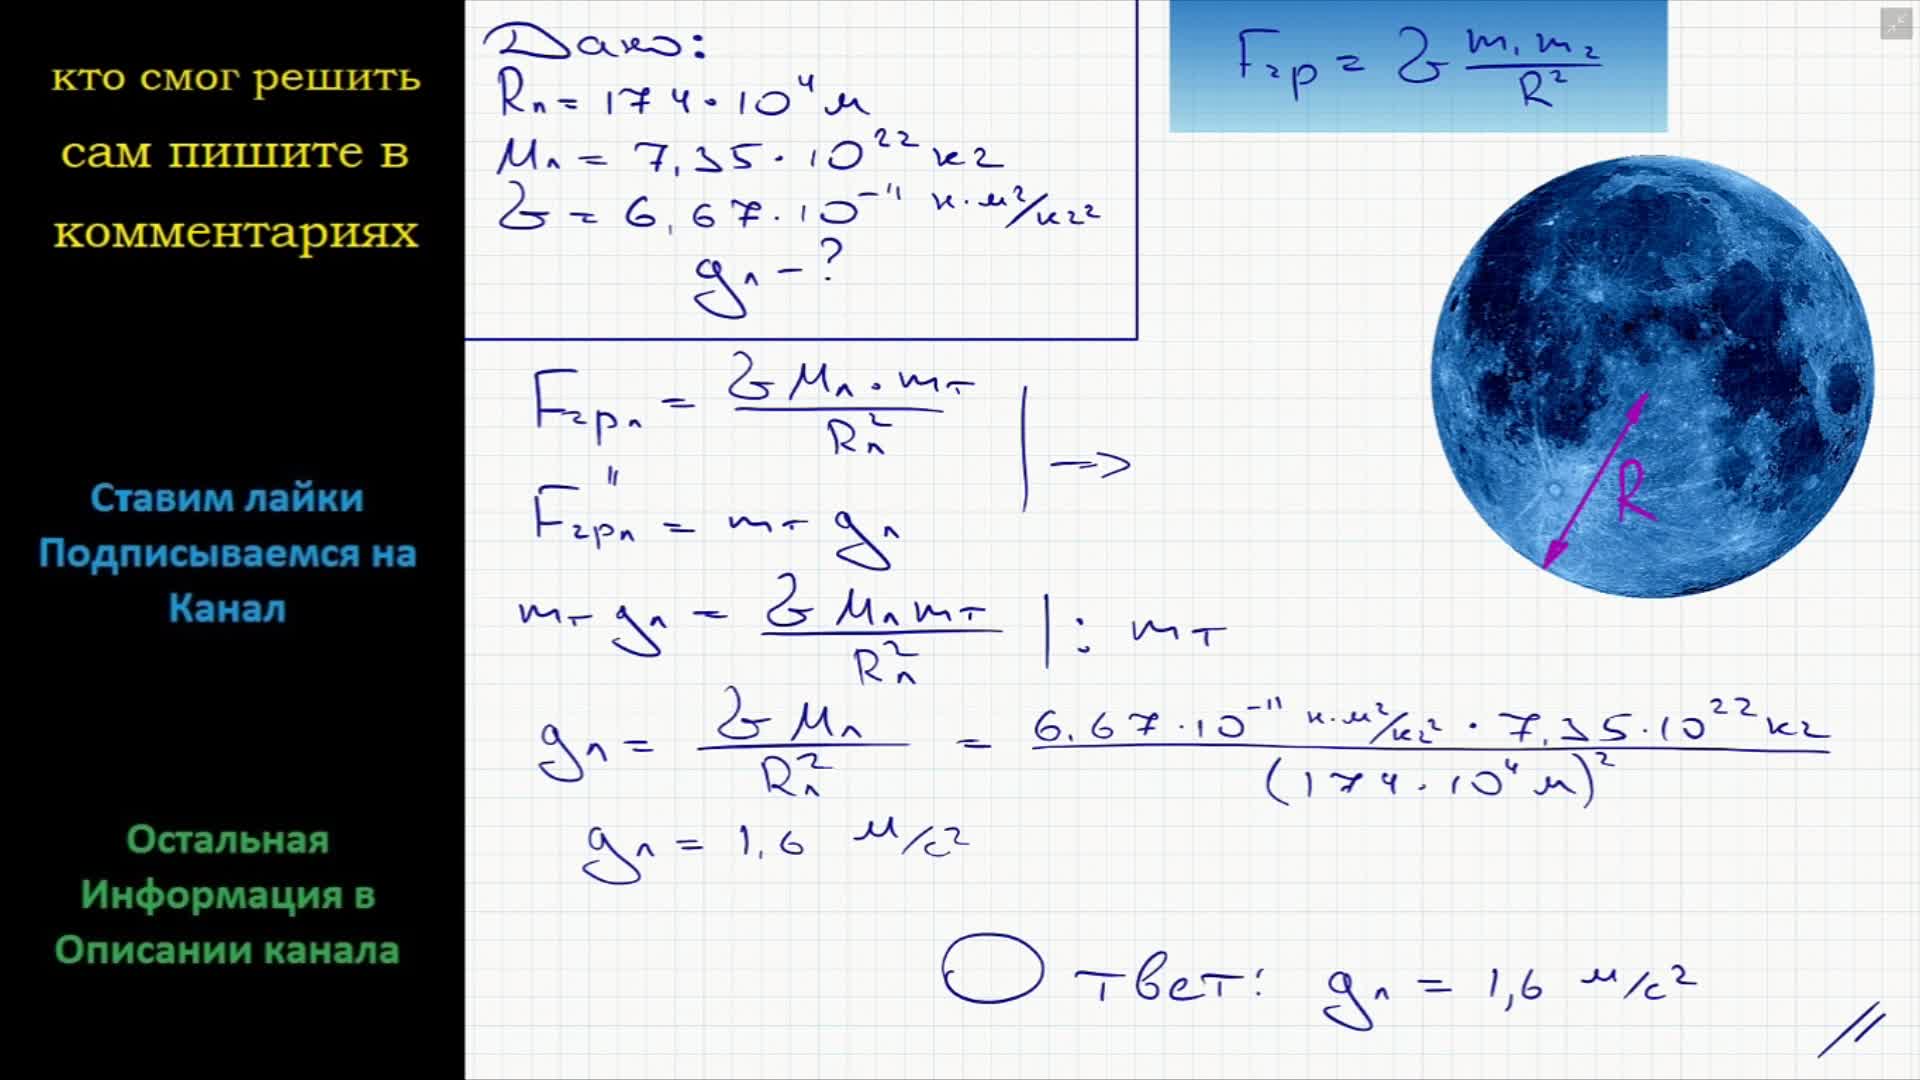 кто смог решить
сам пишите в
комментариях
Ставим лайки
Подписываемся на
Канал
Остальная
Информация в
Описании канала
Дано:
Rл = 174·10⁴ м
Mл = 7,35·10²² кг
G = 6,67·10⁻¹¹ н·м²/кг²
gл – ?
Fгр = G m₁m₂/R²
Fгрл = G Mл·mт/Rл² | →
"
Fгрл = mт gл
mт gл = G Mл mт/Rл² | : mт
gл = G Mл/Rл² = 6.67·10⁻¹¹ н·м²/кг² · 7,35·10²² кг/(174·10⁴ м)²
gл = 1,6 м/с²
Ответ: gл = 1,6 м/с²
R